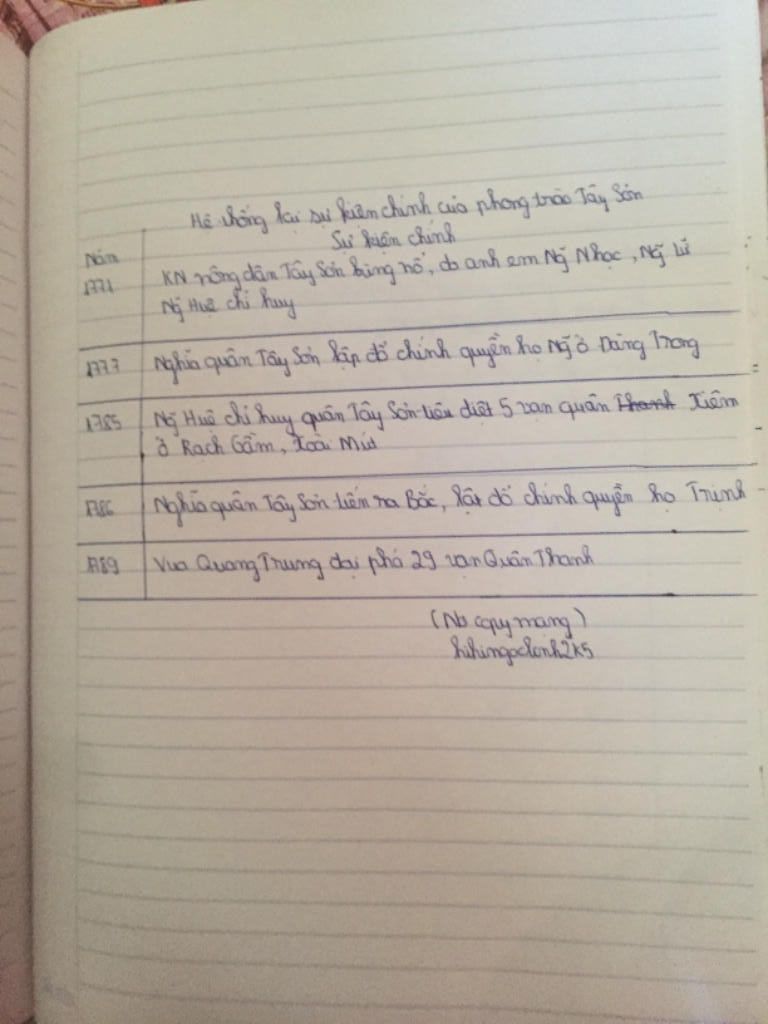 Hê thống lại sự kiện chính của phong trào Tây Sơn
Năm
Sự kiện chính
1771
KN nông dân Tây Sơn bùng nổ, do anh em Ng Nhạc, Ng Lữ
Ng Huệ chỉ huy
1777
Nghĩa quân Tây Sơn lập đổ chính quyền họ Ng ở Đàng Trong
1785
Ng Huệ chỉ huy quân Tây Sơn tiêu diệt 5 vạn quân Thanh Xiêm
ở Rạch Gầm, Xoài Mút
1786
Nghĩa quân Tây Sơn tiến ra Bắc, lật đổ chính quyền họ Trịnh
1789
Vua Quang Trung đại phá 29 vạn Quân Thanh
(Nb copy mạng)
hihingoclanh2k5